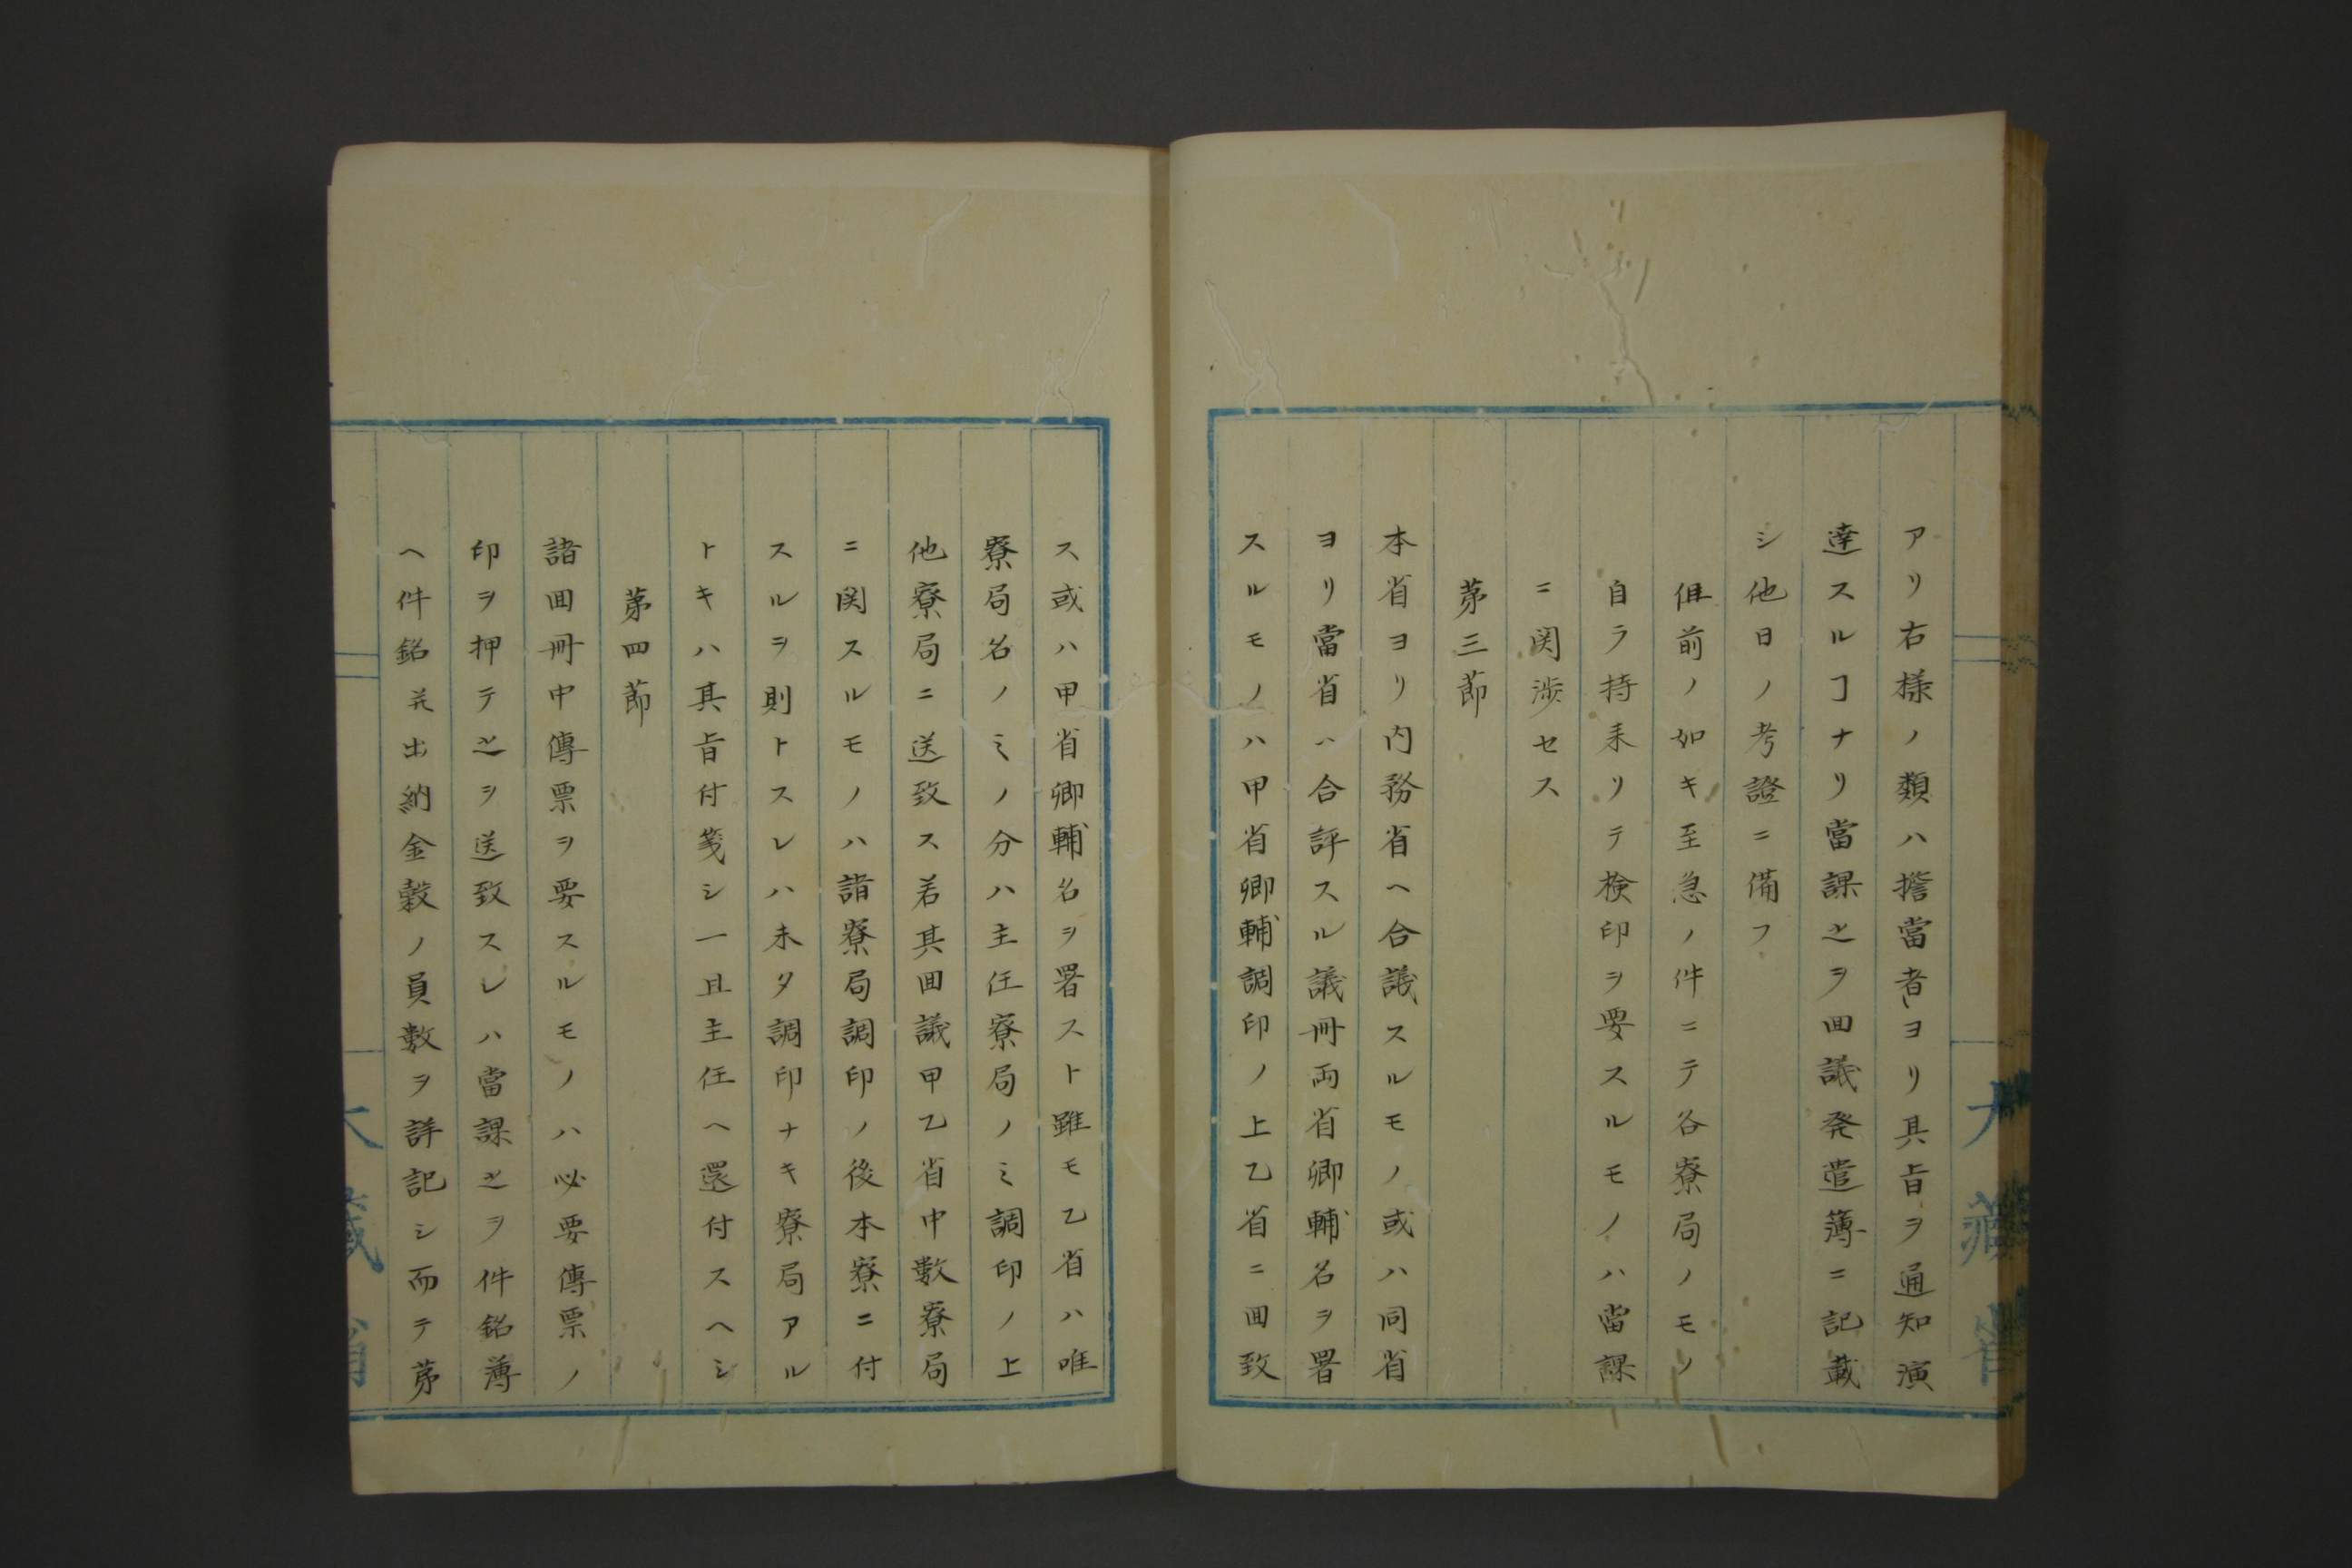 アリ右様ノ類ハ擔當者ヨリ其旨ヲ通知演
達スルヿナリ當課之ヲ回議発遣簿ニ記載
シ他日ノ考證ニ備フ
但前ノ如キ至急ノ件ニテ各寮局ノモノ
自ラ持来リテ検印ヲ要スルモノハ當課
ニ関渉セス
第三節
本省ヨリ内務省ヘ合議スルモノ或ハ同省
ヨリ當省ハ合評スル議冊両省卿輔名ヲ署
スルモノハ甲省卿輔調印ノ上乙省ニ回致
ス或ハ甲省卿輔名ヲ署スト雖モ乙省ハ唯
寮局名ノミノ分ハ主任寮局ノミ調印ノ上
他寮局ニ送致ス若其回議甲乙省中數寮局
ニ関スルモノハ諸寮局調印ノ後本寮ニ付
スルヲ則トスレハ未タ調印ナキ寮局アル
トキハ其旨付箋シ一且主任ヘ還付スヘシ
第四節
諸回冊中傳票ヲ要スルモノハ必要傳票ノ
印ヲ押テ之ヲ送致スレハ當課之ヲ件銘薄
ヘ件銘并出納金穀ノ員數ヲ詳記シ而テ第
大藏省